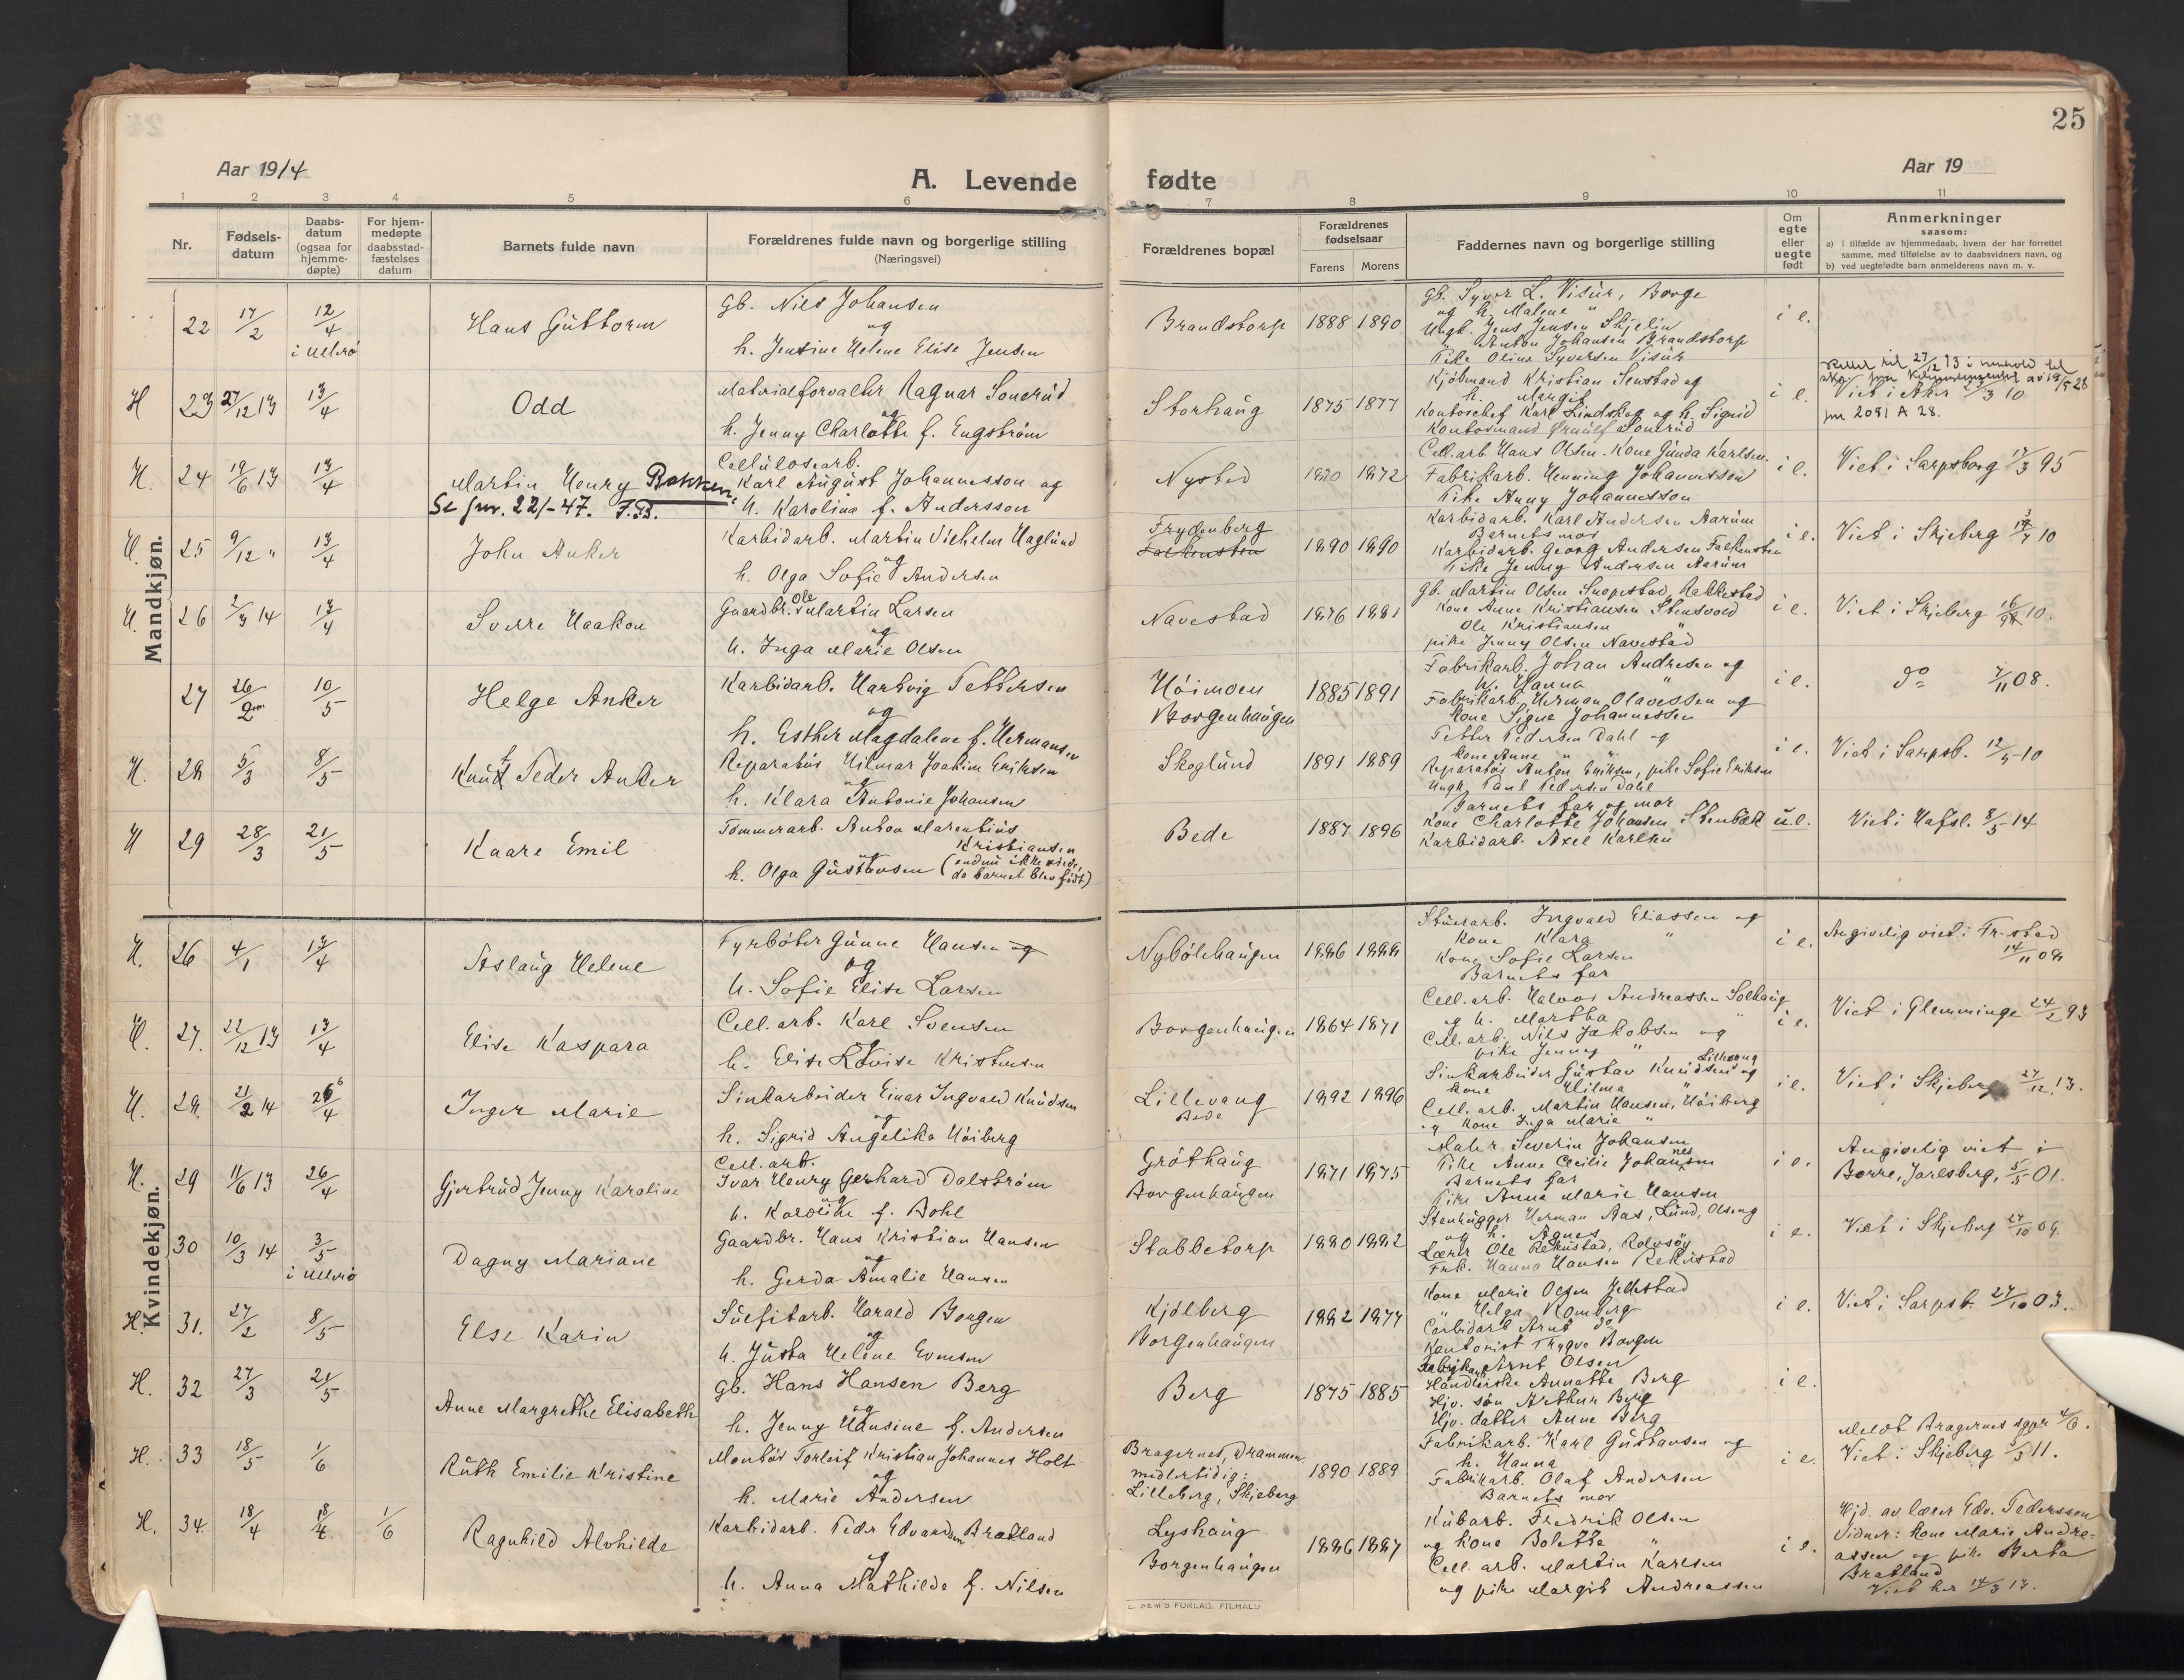 25
Aar 1914
A. Levende fødte
Aar 19
1 2 3 4 5 6 7 8 9 10 11
Nr.
Fødsels-
datum
Daabs-
datum
(ogsaa for
hjemme-
døpte)
For hjem-
medøpte
daabsstad-
fæstelses
datum
Barnets fulde navn
Forældrenes fulde navn og borgerlige stilling
(Næringsvei)
Forældrenes bopæl
Forældrenes
fødselsaar
Farens Morens
Faddernes navn og borgerlige stilling
Om
egte
eller
uegte
født
Anmerkninger
saasom:
a) i tilfælde av hjemmedaab, hvem der har forrettet
samme, med tilføielse av to daabsvidners navn, og
b) ved uegtefødte barn anmelderens navn m. v.
Mandkjøn.
22 17/2 12/4 i Ullerö
Hans Guttorm
Gb. Nils Johansen
og
h. Jensine Helene Elise Jensen
Brandstorp 1888 1890
Gb. Syver L. Visür, Borge
og h. Malene "
Ungk. Jens Jensen Skjelin
" Anton Johansen Brandstorp
Pike Oline Syversen Visür
i e.
H 23 27/12 13 13/4
Odd
Materialforvalter Ragnar Sonerüd
og
h. Jenny Charlotte f. Engström
Storhaüg 1875 1877
Kjöbmand Kristian Senstad og
h. Margit
Kontorchef Karl Lindskog og h. Sigrid
Kontormand Sonerüd
i e.
Viet i Aker 10
jnr 2091 A 28.
H. 24 19/6 13 13/4
Martin Henry Bakken.
Se jnr. 221-47. F.B.
Cellülosearb.
Karl Aügüst Johannesson og
h. Karolina f. Andersson
Nysted 1872
Cell.arb Hans Olsen. Kone Günda Karlsen.
Fabrikarb. Henning Johannesson
Pike Anny Johannesson
i e.
Viet i Sarpsborg 17/3 95
H. 25 9/12 " 13/4
John Anker
Karbidarb. Martin Vilhelm Haglünd
og
h. Olga Sofie Andersen
Frydenberg
Falkensten
1890 1890
Karbidarb. Karl Andersen Aarüm
Barnets mor
Karbidarb. Georg Andersen Falkensten
Pike Jenny Andersen Aarüm
i e.
Viet i Skjeberg 10
H. 26 2/3 14 13/4
Sverre Haakon
Gaardbr. Ole Martin Larsen
og
h. Inga Marie Olsen
Navestad 1876 1881
Gb. Martin Olsen Snopestad, Rakkestad
Kone Anne Kristiansen Stensvold
Ole Kristiansen "
pike Jenny Olsen Navestad
i e.
Viet i Skjeberg 10.
27 26/2 10/5
Helge Anker
Karbidarb. Hartvig Pettersen
og
h. Esther Magdalene f. Hermansen
Höimoen
Borgenhaügen
1885 1891
Fabrikarb. Johan Andresen og
h. Hanna "
Fabrikarb. Herman Olavessen og
kone Signe Johannessen
i e.
do 7/11 08.
H. 28 5/3 8/5
Knüt Peder Anker
Reparatör Hilmar Joakim Eriksen
og
h. Klara Antonie Johansen
Skoglünd 1891 1889
Petter Pedersen Dahl og
kone Anne "
Reparatör Anton Eriksen, pike Sofie Eriksen
Ungk. Paul Pedersen Dahl
i e.
Viet i Sarpsb. 10
H 29 28/3 21/5
Kaare Emil
Tømmerarb. Anton Marentiüs
Kristiansen
og
h. Olga Güstavsen (endnü ikke viede,
da barnet blev født)
Bede 1887 1896
Barnets far og mor
Kone Charlotte Johansen Stenbæk
Karbidarb. Axel Karlsen
ü.e.
Viet i Hafsl. 8/5 14
Kvindekjøn.
H. 26 4/1 13/4
Aslaüg Helene
Fyrböter Günne Hansen og
og
h. Sofie Elise Larsen
Nybölehaügen 1886 1888
Stüerarb. Ingvald Eliassen og
kone Klara "
Kone Sofie Larsen
Barnets far
i e.
Angivelig viet i Fr.stad
14/11 08
H. 27. 22/12 13 13/4
Elise Kaspara
Cell.arb. Karl Svensen
og
h. Elise Lovise Kristensen
Borgenhaügen 1864 1871
Cell.arb. Halvor Andreassen Solhaüg
og h. Martha "
Cell.arb. Nils Jakobsen og
pike Jenny "
i e.
Viet i Glemminge 24/2 93
H. 28. 21/2 14 26/4
Inger Marie
Sinkarbeider Einar Ingvald Knüdsen
og
h. Sigrid Angelika Höiberg
Lillevang
Bede
1892 1896
Sinkarbeider Güstav Knüdsen og Lillevang
kone Hilma "
Cell. arb. Martin Hansen, Höiberg
og kone Inga Marie "
i e.
Viet i Skjeberg 27/12 13.
H. 29 11/6 13 26/4
Gjertrüd Jenny Karoline
Cell.arb.
Ivar Henry Gerhard Dalström
og
h. Karoline f. Bohl
Gröthaüg
Borgenhaügen
1871 1875
Maler Severin Johansen
Pike Anne Cecilie Johannesen
Barnets far
Pike Anna Marie Hansen
i e.
Angivelig viet i
Borre, Jarlsberg, 5/5 01.
30 10/3 14 3/5 i Ullerö
Dagny Mariane
Gaardbr. Hans Kristian Hansen
og
h. Gerda Amalie Hansen
Stabbetorp 1880 1882
Stenhügger Herman Aas, Lünd, Olseng
og h. Agnes
Lærer Ole Rekustad, Rolvsöy
Frk. Hanna Hansen Rekustad
i e.
Viet i Skjeberg 27/10 09
H. 31. 27/2 8/5
Else Karin
Sülfitarb. Harald Borgen
og
h. Jüsta Helene Evensen
Kjölberg
Borgenhaügen
1882 1877
Kone Marie Olsen Jellestad
" Helga Romberg
Carbidarb Arnt do
Kontorist Trygve Borgen
i e.
Viet i Sarpsb. 27/10 03.
H. 32 27/3 21/5
Anne Margrethe Elisabeth
Gb. Hans Hansen Berg
og
h. Jenny Hansine f. Andersen
Berg 1875 1885
Fabrikarb. Arnt Olsen
Handlerske Annette Berg
Hjv. søn Arthur Berg
Hjv. datter Anne Berg
i e.
H. 33 18/5 1/6
Rüth Emilie Kristine
Montör Torleif Kristian Johannes Holt
og
h. Marie Andersen
Bragernes, Drammen
midlertidig:
Lilleborg, Skjeberg
1890 1889
Fabrikarb. Karl Güstavsen og
h. Hanna
Fabrikarb. Olaf Andersen
Barnets mor
i e.
Meldt Bragernes spgr 4/6.
Viet i Skjeberg 11.
H. 34. 18/4 18/4 1/6
Ragnhild Alvhilde
Karbidarb. Peder Edvardsen Bratland
og
h. Anna Mathilde f. Nilsen
Lyshaüg
Borgenhaügen
1886 1887
Kübarb. Fredrik Olsen
og kone Bolette "
Cell. arb. Martin Karlsen
og pike Margit Andreassen
i e.
Hjd. av lærer Edv. Pedersson
Vidner: kone Marie Andre-
assen og pike Berta
Bratland
Viet her 14/3 13.
E. SEM'S FORLAG. FR.HALD